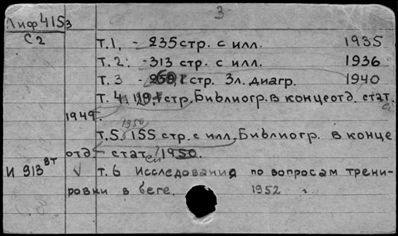 3
Лиф 4153
С 2
Т.1, - 235 стр. с илл. 1935
Т.2. - 313 стр. с илл. 1936
Т.3 - стр. 3л. диагр. 1940
Т.4, стр, Библиогр. в конце отд. стат.
1949.
1950
Т.5. 155 стр. с илл. Библиогр. в конце
отд. статей 1950.
И 913 вт √ Т.6 Исследования по вопросам трени-
ровки в беге. 1952